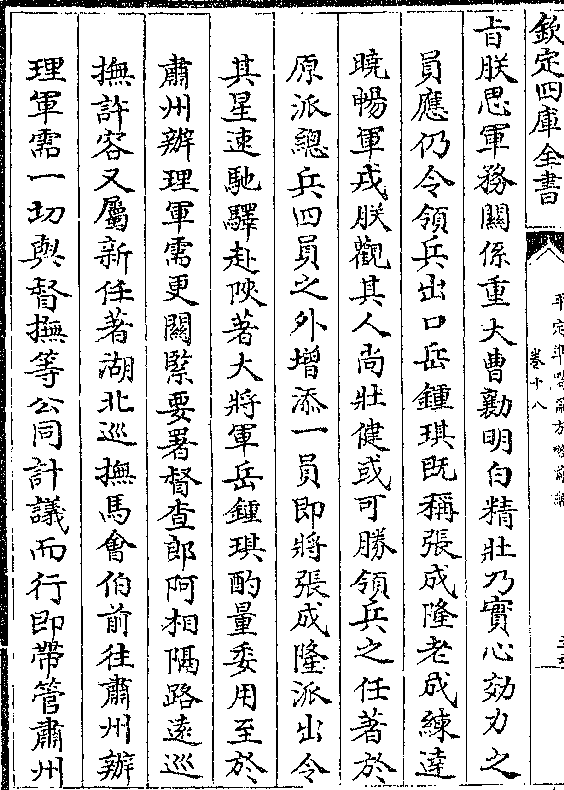 欽定四庫全書
平定準噶爾方略前編
卷十八
旨朕思軍務關係重大曹勷明白精壯乃實心効力之
員應仍令領兵出口岳鍾琪既稱張成隆老成練達
曉暢軍戎朕觀其人尚壯健或可勝領兵之任著於
原派總兵四員之外增添一員即將張成隆派出令
其星速馳驛赴陜著大將軍岳鍾琪酌量委用至於
肅州辦理軍需更關緊要署督查郎阿相隔路遠巡
撫許容又屬新任著湖北巡撫馬會伯前往肅州辦
理軍需一切與督撫等公同計議而行即帶管肅州